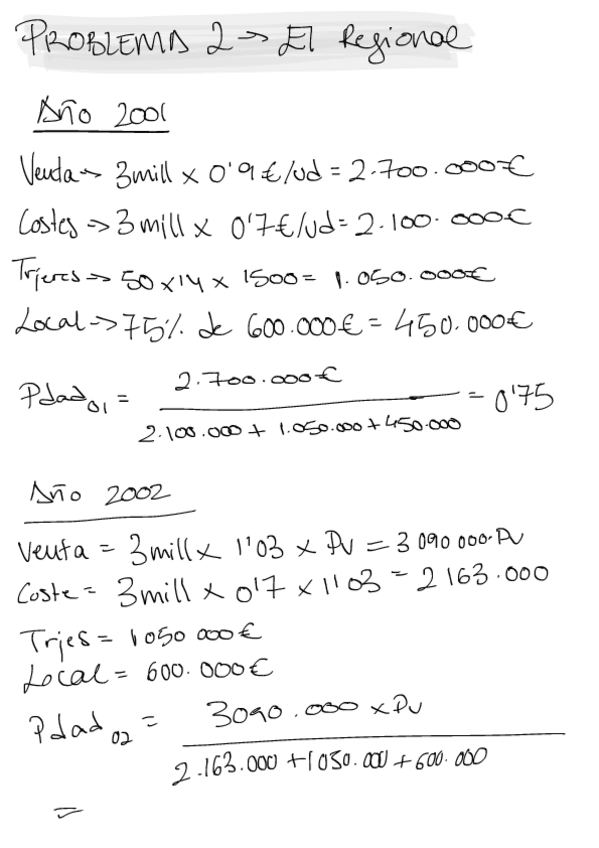 PROBLEMA 2 → El Regional
Año 2001
Venta → 3mill x 0'9 €/ud = 2.700.000€
Costes → 3mill x 0'7€/ud = 2.100.000€
Trjeres → 50 x 14 x 1500 = 1.050.000€
Local → 75% de 600.000€ = 450.000€
Pdad01 = 2.700.000€ / 2.100.000 + 1.050.000 + 450.000 = 0'75
Año 2002
Venta = 3mill x 1'03 x Pv = 3 090 000·Pv
Coste = 3mill x 0'7 x 1'03 = 2 163.000
Trjes = 1050 000€
Local = 600.000€
Pdad02 = 3090.000 x Pv / 2.163.000 + 1050.000 + 600.000
=